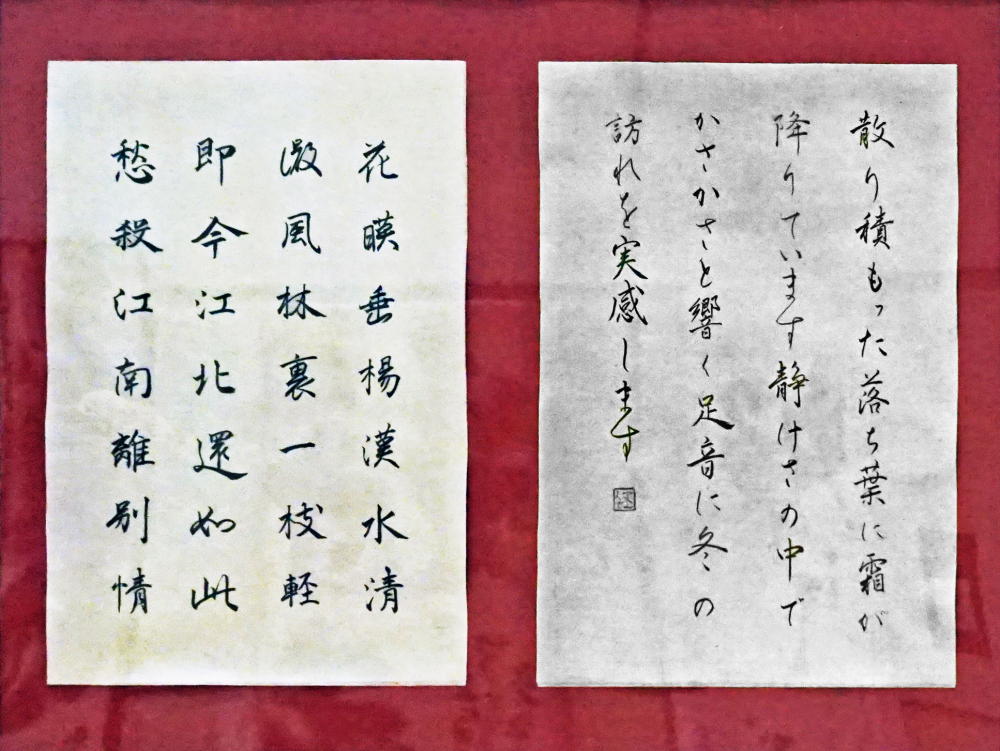 散り積もった落ち葉に霜が
降りています静けさの中で
かさかさと響く足音に冬の
訪れを実感します
花暎垂楊漢水清
微風林裏一枝軽
即今江北還如此
愁殺江南離別情